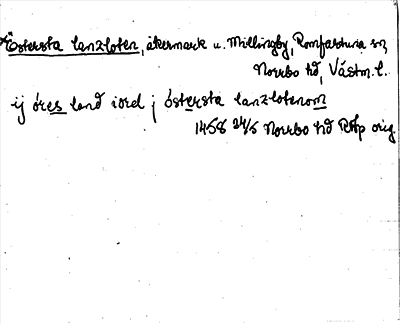 Östersta lanzloten, åkermark u. Millingby, Romfartuna sn,
Norrbo hd, Västm. l.
ij öres land iord j östersta lanzlotenom
1458 24/5 Norrbo hd RAp orig.